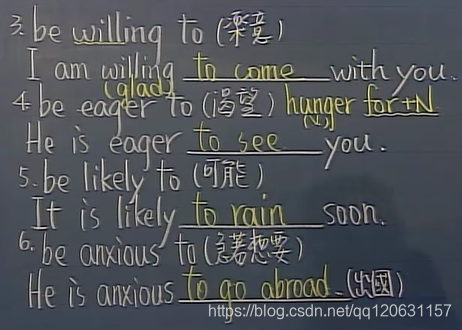 3. be willing to (樂意)
I am willing to come with you.
(glad)
4. be eager to (渴望) hunger for+N
(V)
He is eager to see you.
5. be likely to (可能)
It is likely to rain soon.
6. be anxious to (急著想要)
He is anxious to go abroad. (出國)
https://blog.csdn.net/qq120631157